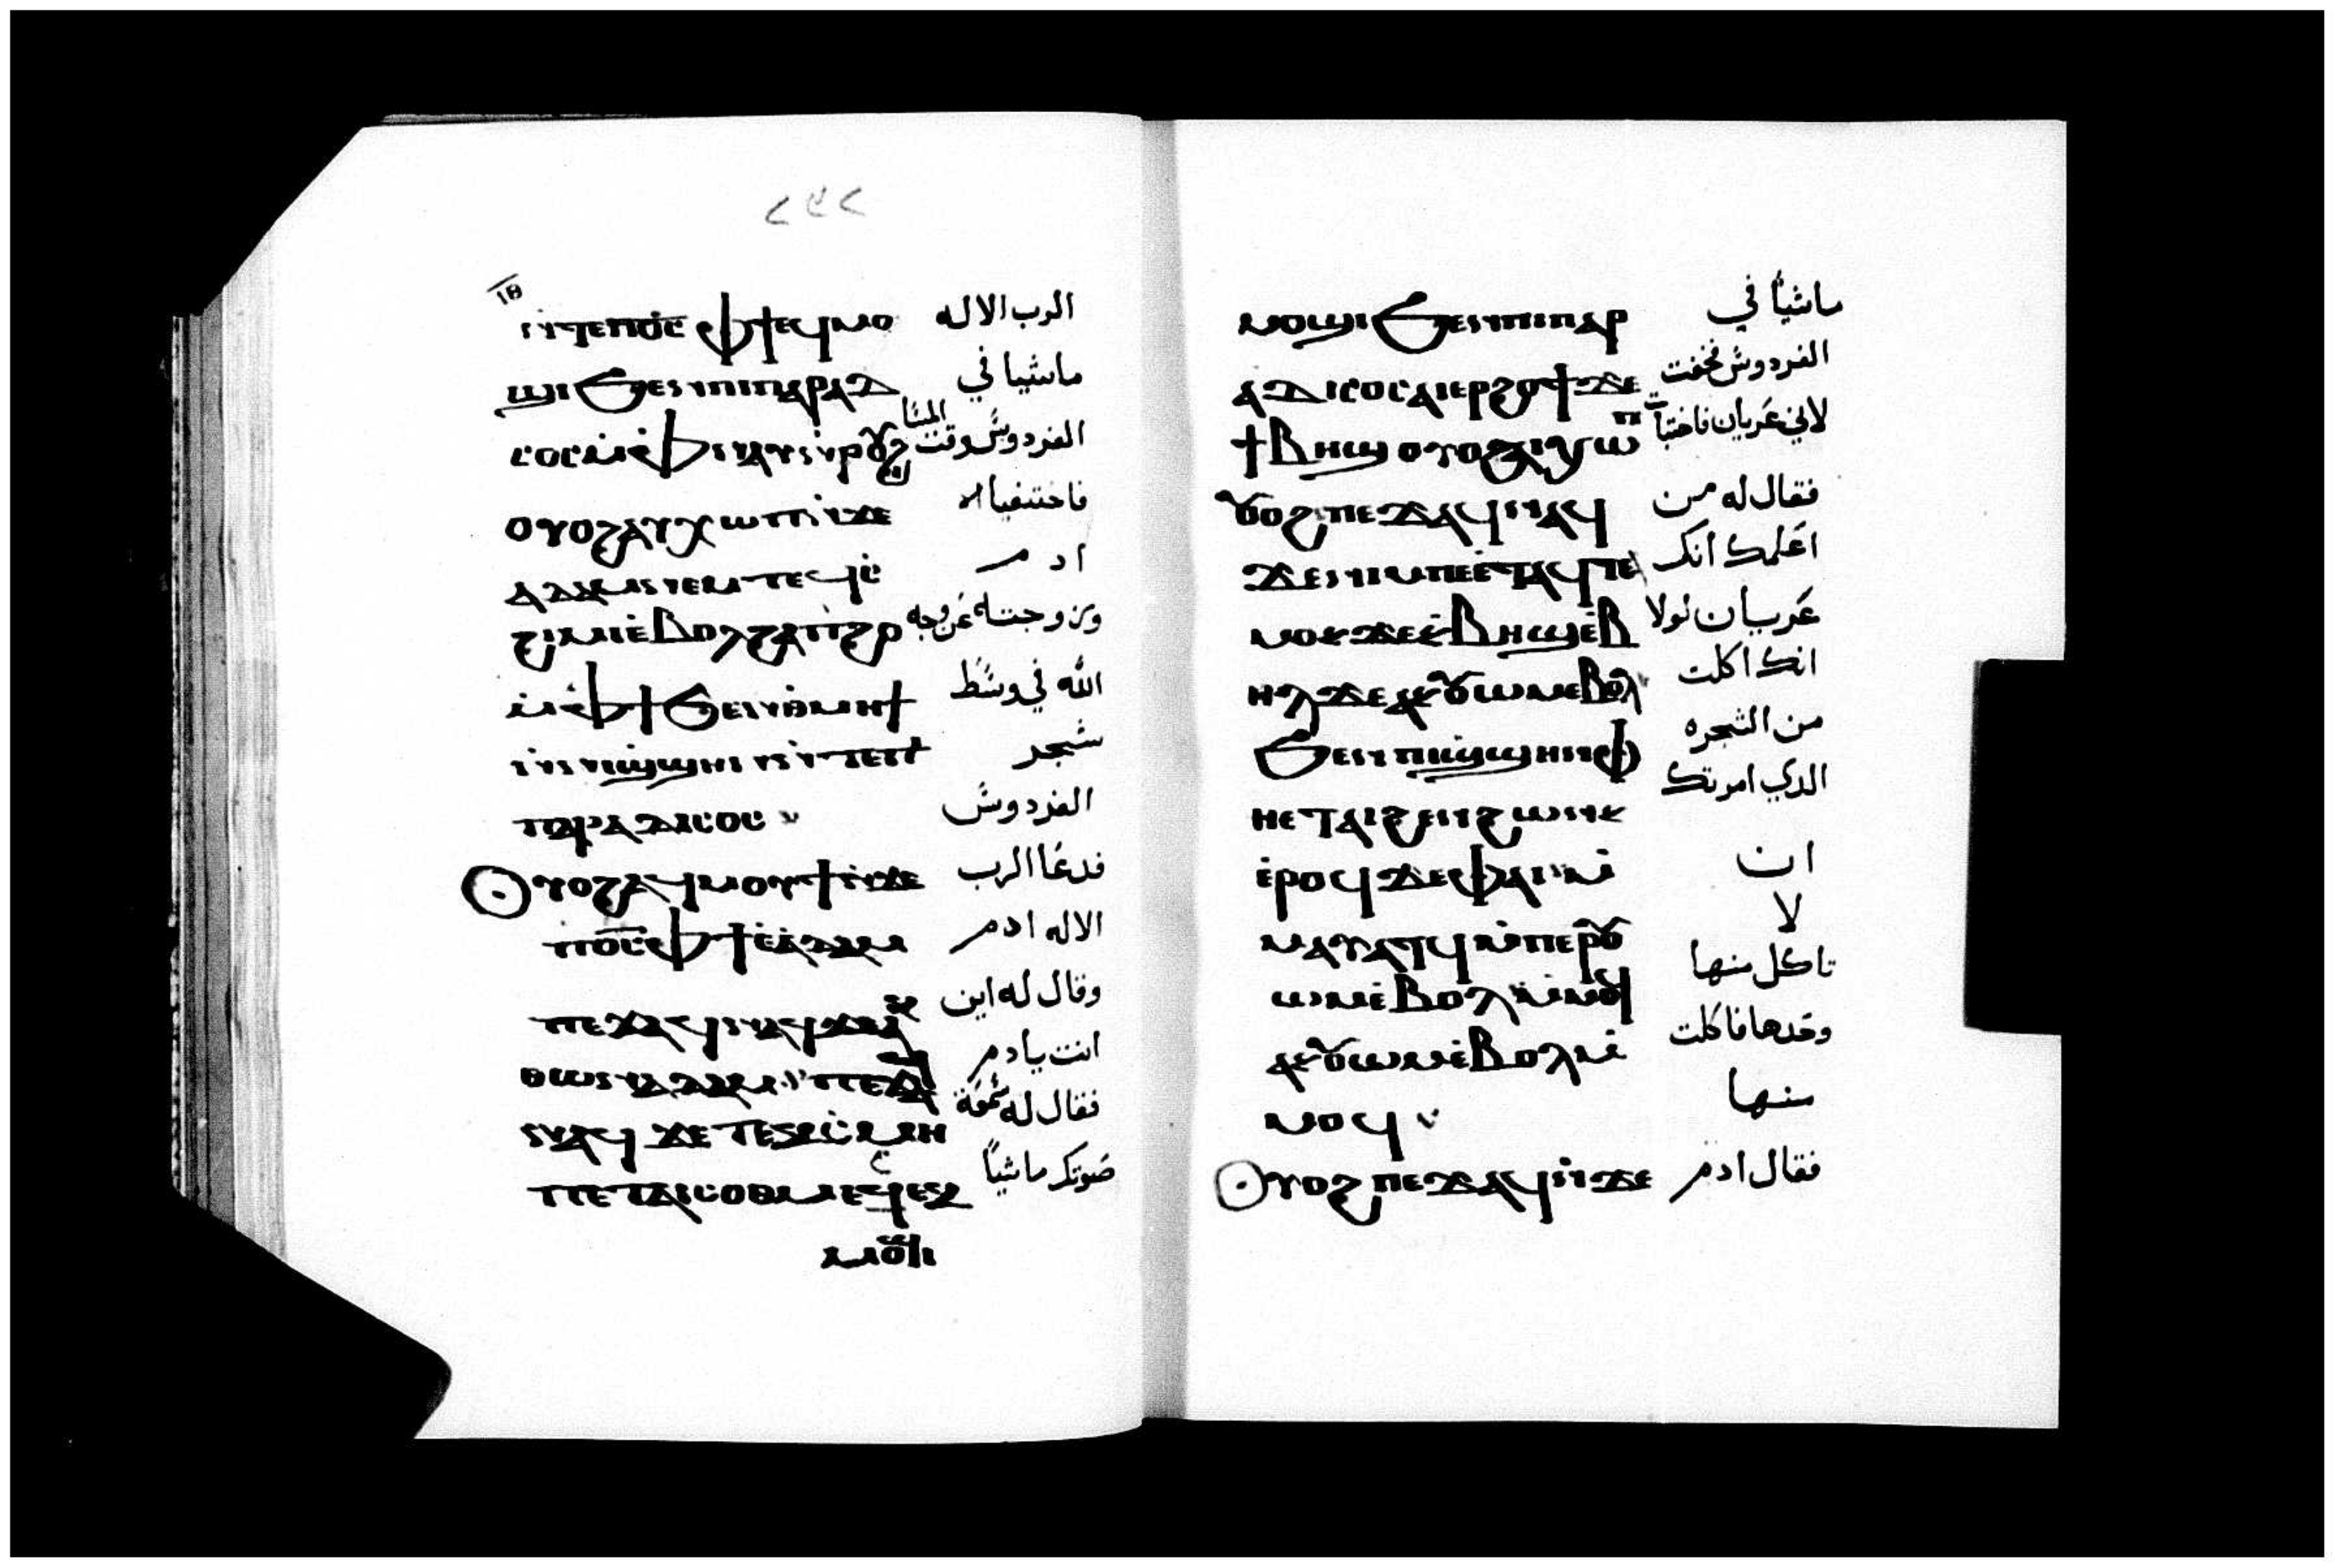 ⲓⲑ
ⲛⲧⲉⲡⲟ̅ⲥ̅ ⲫϯ ⲉϥⲙⲟ الرب الاله
ϣⲓ ϧⲉⲛ ⲡⲓⲡⲁⲣⲁⲇ ماشيا في
المسا
ⲥⲟⲥ ⲙ̀ⲫⲛⲁⲩ ⲛ̀ⲣⲟⲩϩ الفردوس وقت
ⲟⲩⲟϩ ⲁⲩⲭⲱⲡ ⲛ̀ϫⲉ فاختفيا
ⲁⲇⲁⲙ ⲛⲉⲙ ⲧⲉϥⲥ̀ ادم
ϩⲓⲙⲓ ⲉ̀ⲃⲟⲗ ϩⲁ ⲡϩⲟ وزوجته عن وجه
ⲙ̀ⲫϯ ϧⲉⲛ ⲑ̀ⲙⲏϯ الله في وسط
ⲛ̀ⲛⲓϣ̀ϣⲏⲛ ⲛ̀ⲧⲉⲡⲓ شجر
ⲡⲁⲣⲁⲇⲓⲥⲟⲥ الفردوس
ⲟⲩⲟϩ ⲁϥⲙⲟⲩϯ ⲛ̀ϫⲉ فدعا الرب
ⲡⲟ̅ⲥ̅ ⲫϯ ⲉ̀ⲁⲇⲁⲙ الاله ادم
ⲡⲉϫⲁϥ ⲛⲁϥ ϫⲉ وقال له اين
ⲑⲱⲛ ⲁⲇⲁⲙ ⲡⲉϫⲁϥ انت يا ادم
ⲛⲁϥ ϫⲉ ⲧⲉⲕⲥ̀ⲙⲏ فقال له سمعة
ⲡⲉⲧⲁⲓⲥⲟⲑⲙⲉⲥ ⲉⲕ صوتك ماشياً
ⲙⲟϣⲓ
ⲙⲟϣⲓ ϧⲉⲛ ⲡⲓⲡⲁⲣ ماشياً في
ⲁⲇⲓⲥⲟⲥ ⲁⲓⲉⲣϩⲟϯ ϫⲉ الفردوس فخفت
ϯⲃⲏϣ ⲟⲩⲟϩ ⲁⲓⲭⲱⲡ لاني عريان فاختبأت
ⲟⲩⲟϩ ⲡⲉϫⲁϥ ⲛⲁϥ فقال له من
ϫⲉ ⲛⲓⲙ ⲡⲉⲧⲁϥⲧⲁ اعلمك انك
ⲙⲟⲕ ϫⲉ ⲕ̀ⲃⲏϣ ⲉ̀ⲃ عريان لولا
ⲏⲗ ϫⲉ ⲁⲕⲟⲩⲱⲙ ⲉⲃⲟⲗ انك اكلت
ϧⲉⲛ ⲡⲓϣ̀ϣⲏⲛ ⲫ من الشجره
ⲏⲉⲧⲁⲓϩⲉⲛϩⲱⲛⲕ الدي امرتك
ⲉ̀ⲣⲟϥ ϫⲉ ⲫⲁⲓ ⲙ̀ ان
لا
ⲙⲁⲩⲁⲧϥ ⲙ̀ⲡⲉⲣⲟⲩ تاكل منها
ⲱⲙ ⲉ̀ⲃⲟⲗ ⲙ̀ⲙⲟϥ
ⲁⲕⲟⲩⲱⲙ ⲉ̀ⲃⲟⲗ ⲙ̀ وحدها فاكلت
ⲙⲟϥ منها
ⲟⲩⲟϩ ⲡⲉϫⲁϥ ⲛ̀ϫⲉ فقال ادم